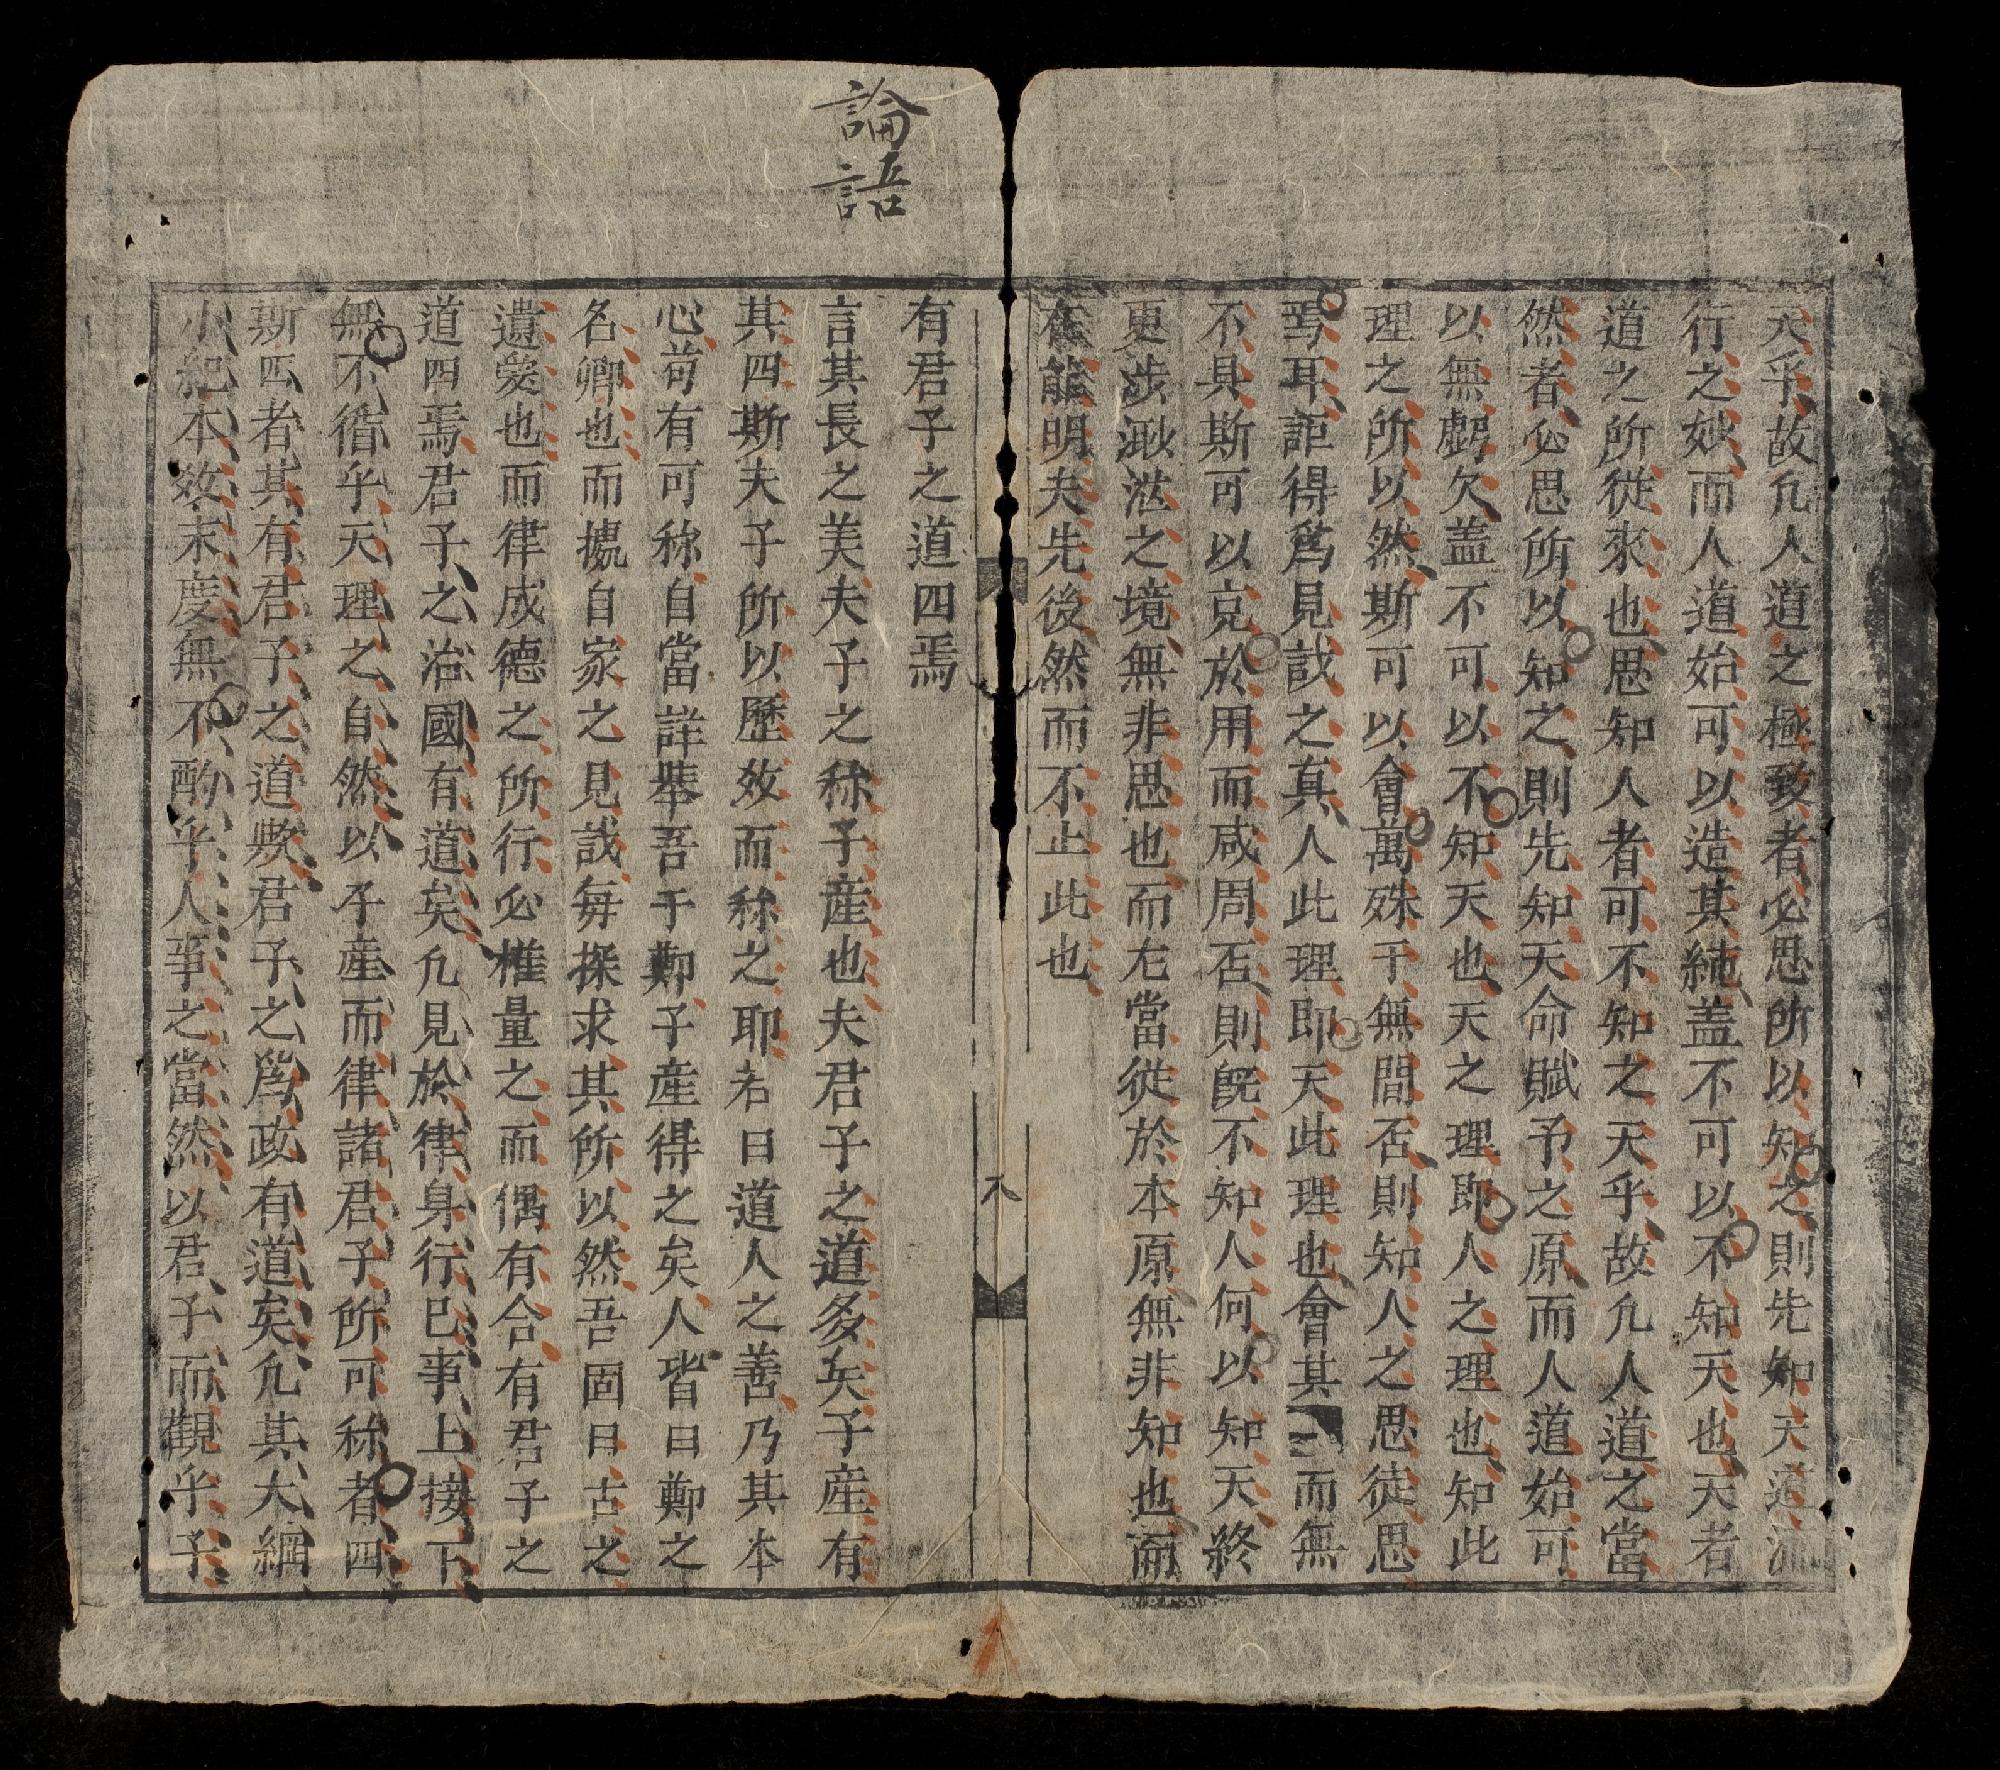 天乎故凢人道之極致者必思所以知之則先知天道流
行之妙而人道始可以造其純盖不可以不知天也天者
道之所從來也思知人者可不知之天乎故凢人道之當
然者必思所以知之則先知天命賦予之原而人道始可
以無虧欠盖不可以不知天也天之理即人之理也知此
理之所以然斯可以會萬殊于無間否則知人之思徒思
焉耳詎得爲見㦲之真人此理即天此理也會其一而無
不具斯可以克於用而咸周否則旣不知人何以知天終
更涉𣺌茫之境無非思也而尢當從於本原無非知也而
在能明夫先後然而不止此也
八
論語
有君子之道四焉
言其長之美夫子之稱子産也夫君子之道多矣子産有
其四斯夫子所以歷效而稱之耶若曰道人之善乃其本
心苟有可稱自當詳舉吾于鄭子産得之矣人皆曰鄭之
名卿也而攄自家之見㦲每探求其所以然吾固曰古之
遺愛也而律成德之所行必權量之而偶有合有君子之
道四焉君子之治國有道矣凢見於律身行巳事上接下
無不循乎天理之自然以子産而律諸君子所可稱者四
斯四者其有君子之道歟君子之爲政有道矣凢其大綱
小紀本效末度無不酌乎人事之當然以君子而觀乎子